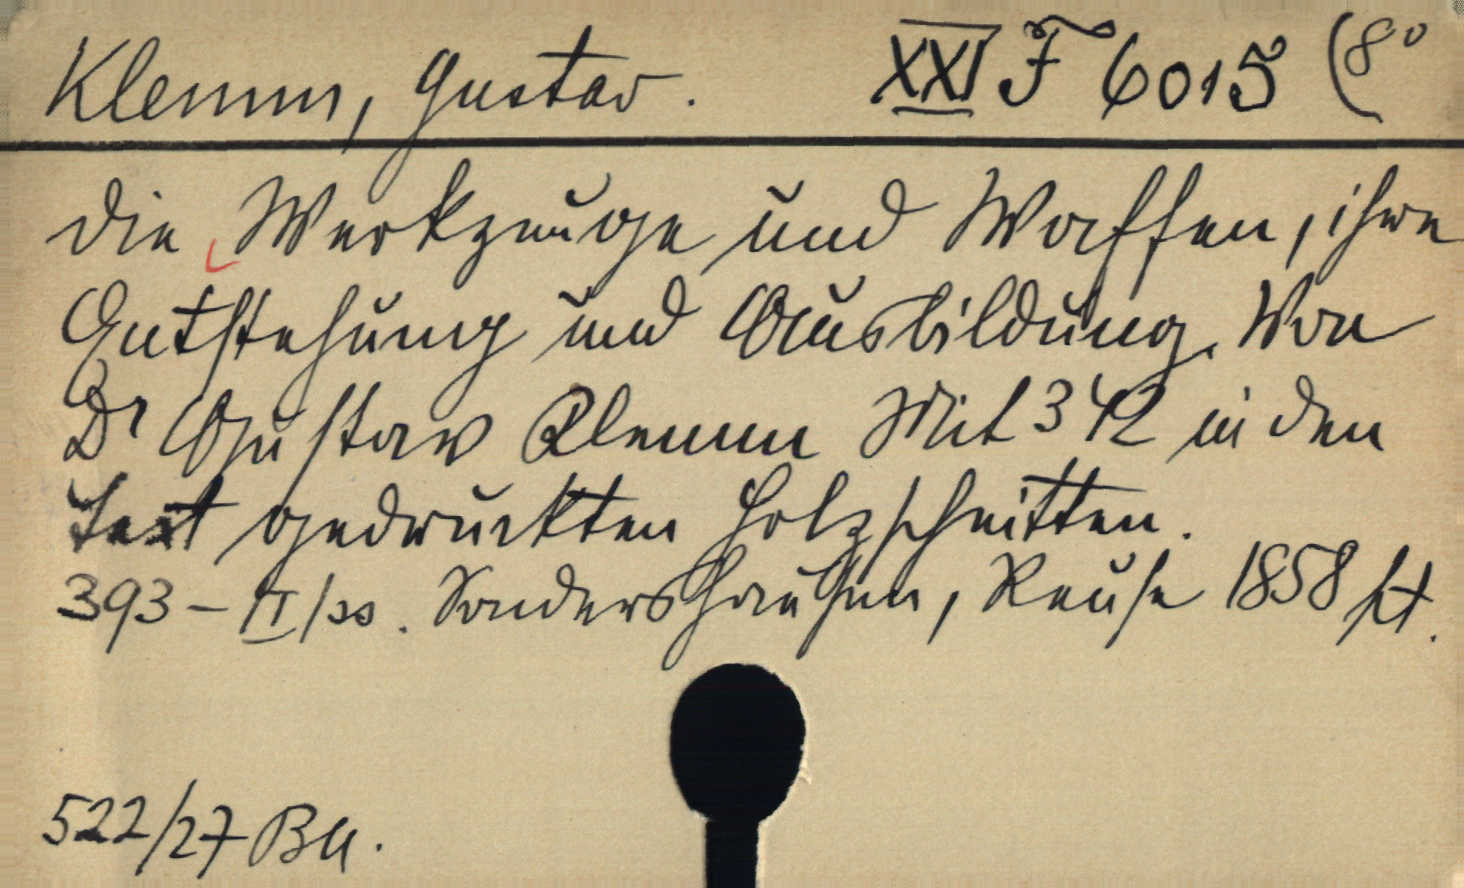 Klemm, Gustav. XXI F 6015 (8°
Die Werkzeuge und Waffen, ihre
Entstehung und Ausbildung. Von
Dr Gustav Klemm Mit 342 in den
Text gedruckten Holzschnitten.
393 – II/ss. Sondershausen, Neuse 1858
522/27 Ba.